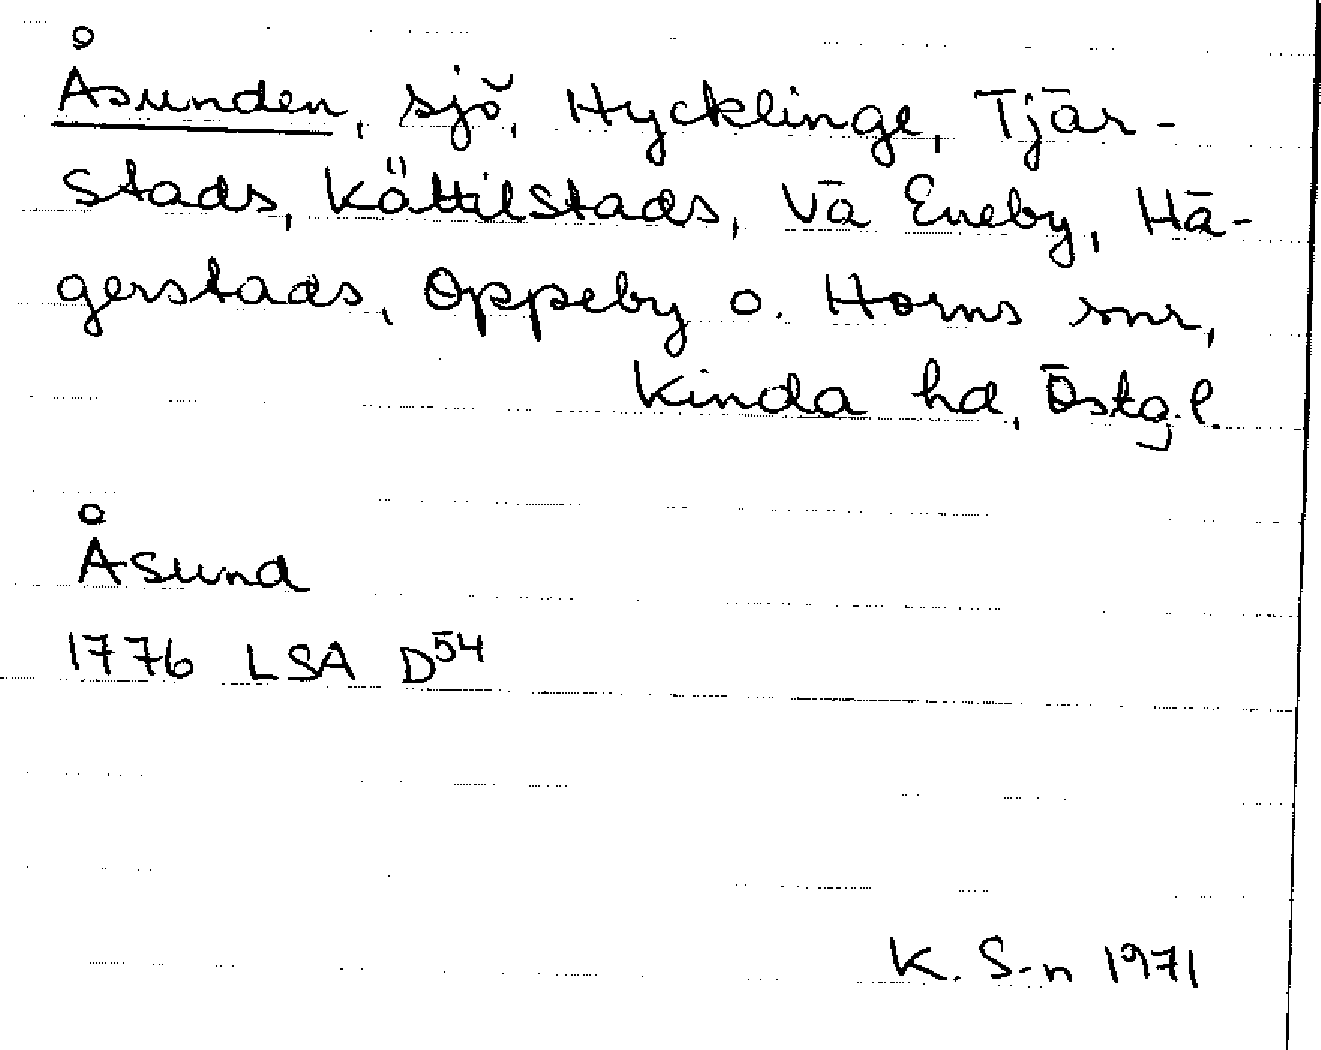 Åsunden, sjö, Hycklinge, Tjär-
stads, Kättilstads, V ä Eneby, Hä-
gerstads, Oppeby o. Horns snr,
Kinda hd, Östg.l.
Åsund
1776 LSA D54
K. S-n 1971